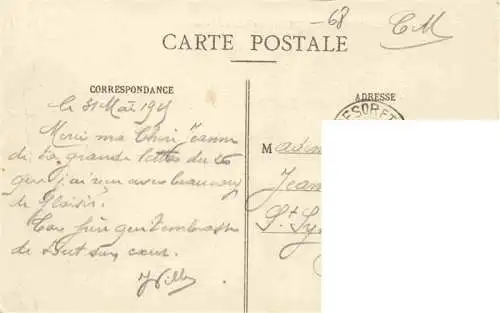 -68
CM
CARTE POSTALE
CORRESPONDANCE
ADRESSE
le 31 Mai 1915
Merci ma Chère Jeanne
de ta grande lettre du 26
que j'ai reçu avec beaucoup
de plaisir.
Ton frère qui t'embrasse
de tout son cœur.
ESOR ET
Mad
Jean
St Sy